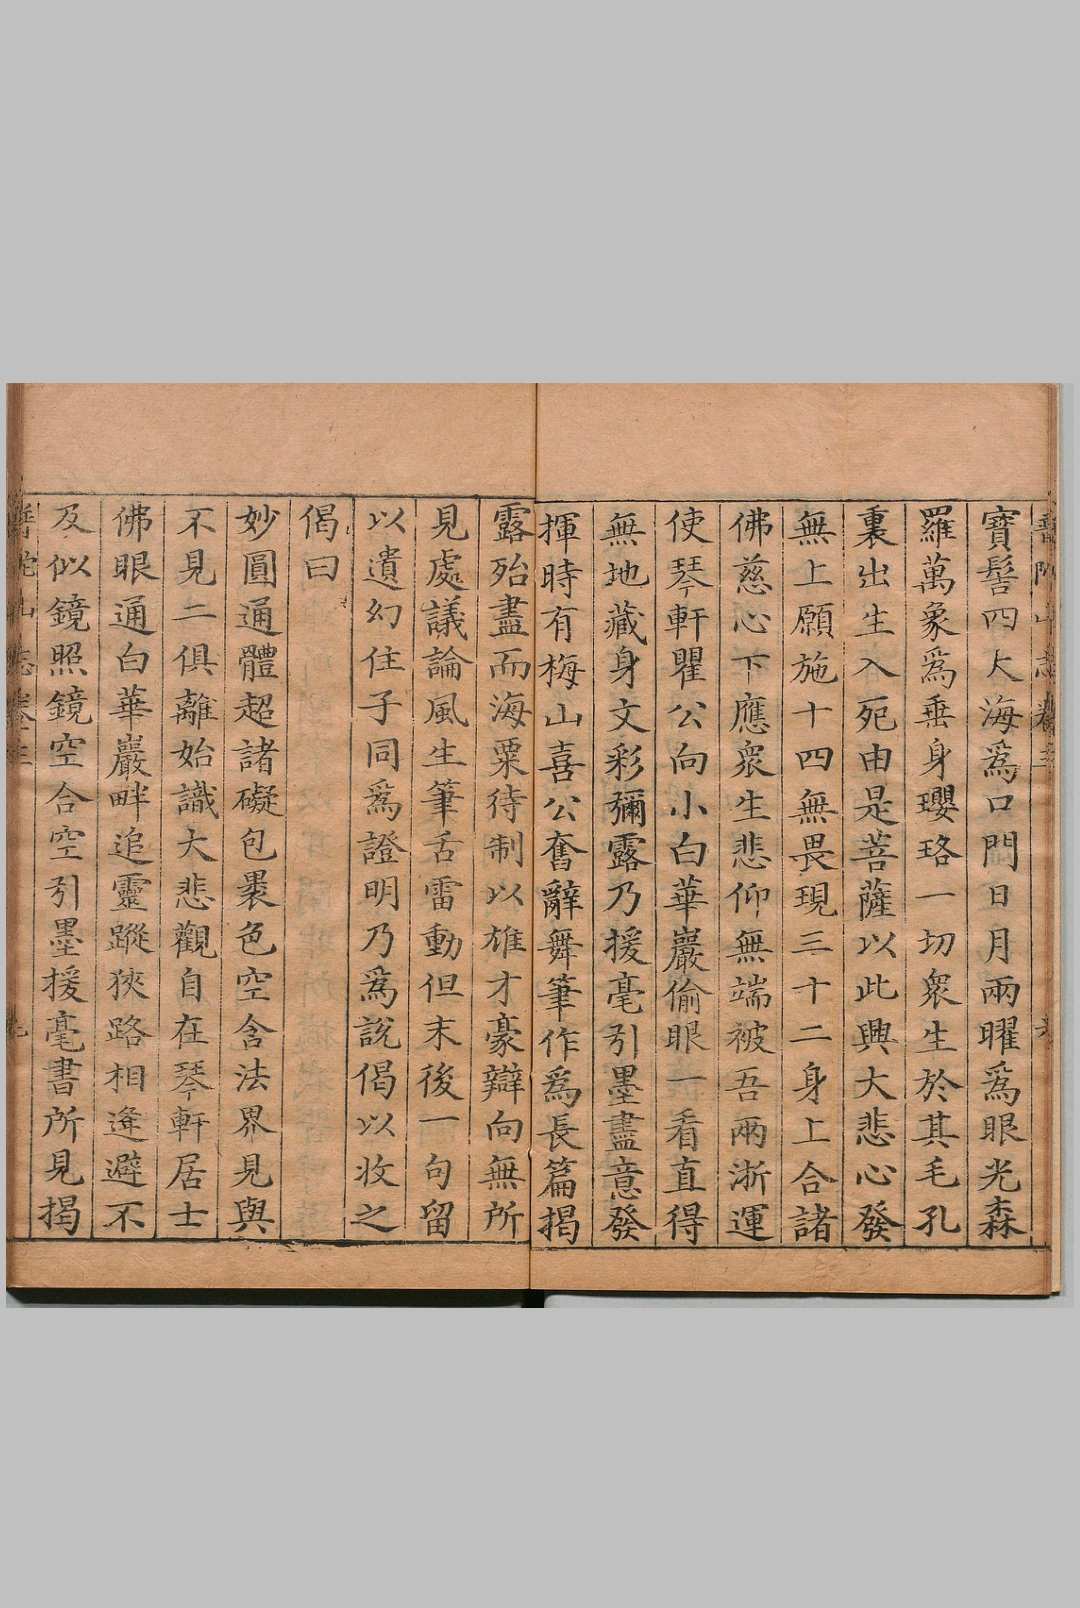 寶髻四大海為口門日月兩曜為眼光森
羅萬象為垂身瓔珞一切衆生於其毛孔
裏出生入死由是菩薩以此興大悲心發
無上願施十四無畏現三十二身上合諸
佛慈心下應衆生悲仰無端被吾兩浙運
使琴軒瞿公向小白華巖偷眼一看直得
無地藏身文彩彌露乃援毫引墨盡意發
揮時有梅山喜公奮辭舞筆作為長篇揭
露殆盡而海粟待制以雄才豪辯向無所
見處議論風生筆舌雷動但末後一句留
以遺幻住子同為證明乃為說偈以收之
偈曰
妙圓通體超諸礙包裹色空含法界見與
不見二俱離始識大悲觀自在琴軒居士
佛眼通白華巖畔追靈蹤狹路相逢避不
及似鏡照鏡空合空引墨援毫書所見揭